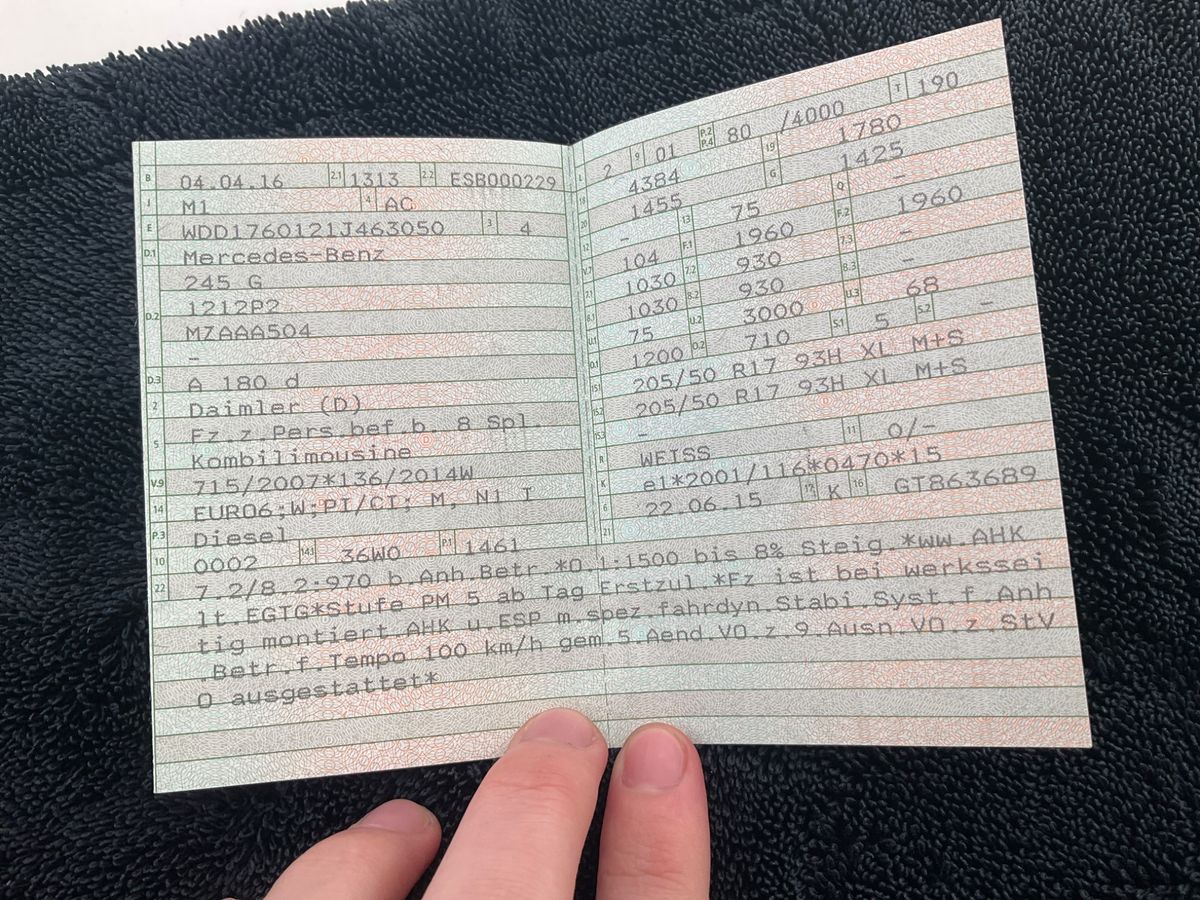 B 04.04.16 2.1 1313 2.2 ESB000229
J M1 4 AC
E WDD1760121J463050 3 4
D.1 Mercedes-Benz
245 G
D.2 1212P2
MZAAA504
-
D.3 A 180 d
2 Daimler (D)
5 Fz.z.Pers.bef.b. 8 Spl.
Kombilimousine
V.9 715/2007*136/2014W
14 EURO6;W;PI/CI; M, N1 I
P.3 Diesel
10 0002 14.1 36W0 P.1 1461
L 2 9 01 P.2 P.4 80 /4000 T 190
18 4384 19 1780
20 1455 G 1425
12 - 13 75 Q -
V.7 104 F.1 1960 F.2 1960
7.1 1030 7.2 930 7.3 -
8.1 1030 8.2 930 8.3 -
U.1 75 U.2 3000 U.3 68
O.1 1200 O.2 710 S.1 5 S.2 -
15.1 205/50 R17 93H XL M+S
15.2 205/50 R17 93H XL M+S
15.3 -
R WEISS 11 0/-
K e1*2001/116*0470*15
6 22.06.15 17 K 16 GT863689
21
22 7.2/8.2:970 b.Anh.Betr.*O.1:1500 bis 8% Steig.*ww.AHK
lt.EGTG*Stufe PM 5 ab Tag Erstzul.*Fz ist bei werkssei
tig montiert.AHK u.ESP m.spez.fahrdyn.Stabi.Syst.f.Anh
.Betr.f.Tempo 100 km/h gem.5.Aend.VO.z.9.Ausn.VO.z.StV
O ausgestattet*